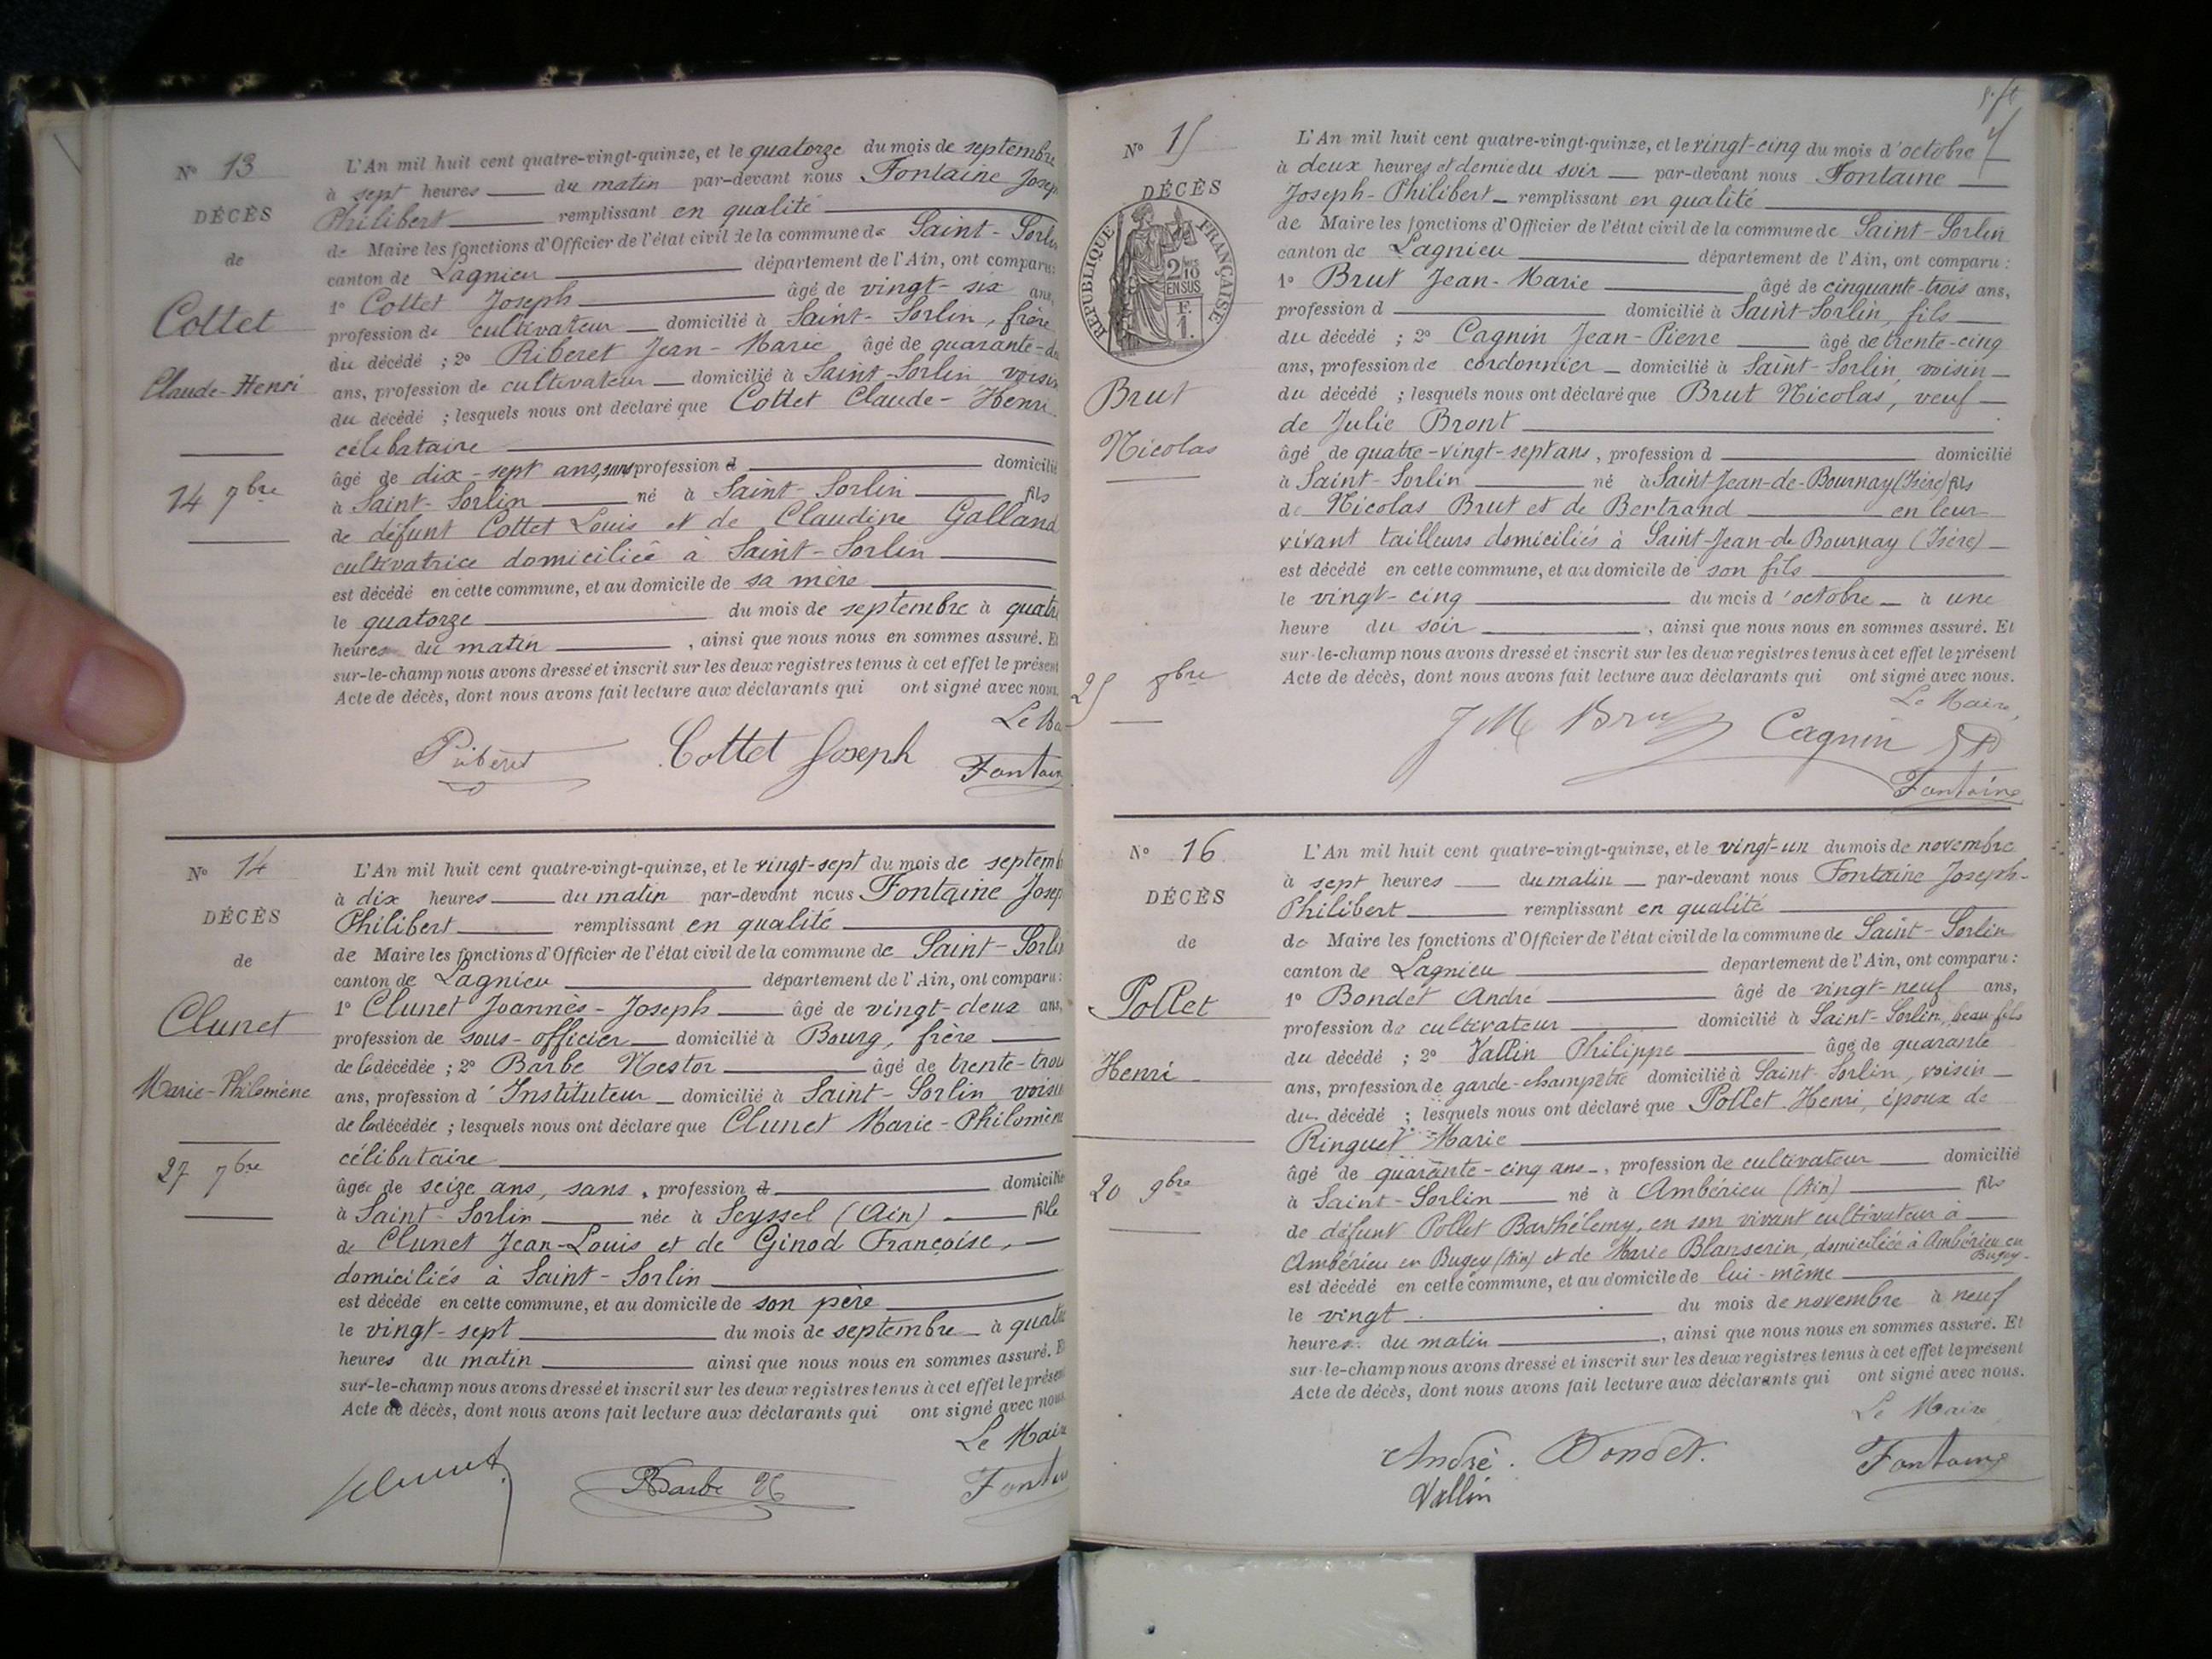 N° 13
DÉCÈS
de
Cottet
Claude-Henri
14 7bre
L'An mil huit cent quatre-vingt-quinze, et le quatorze du mois de septembre
à sept heures du matin par-devant nous Fontaine
Philibert remplissant en qualité
de Maire les fonctions d'Officier de l'état civil de la commune de Saint-
canton de Lagnieu département de l'Ain, ont comparu:
1° Cottet Joseph âgé de vingt-six ans,
profession de cultivateur domicilié à Saint-Sorlin, frère
du décédé ; 2° Riberet Jean-Marie âgé de
ans, profession de cultivateur domicilié à Saint-Sorlin
du décédé ; lesquels nous ont déclaré que Cottet Claude-Henri
célibataire
âgé de dix-sept ans, sans profession d domicilié
à Saint-Sorlin né à Saint-Sorlin fils
de défunt Cottet Louis et de Claudine Golland
cultivatrice domiciliée à Saint-Sorlin
est décédé en cette commune, et au domicile de sa mère
le quatorze du mois de septembre à
heures du matin , ainsi que nous nous en sommes assuré.
sur-le-champ nous avons dressé et inscrit sur les deux registres tenus à cet effet le présent
Acte de décès, dont nous avons fait lecture aux déclarants qui ont signé avec nous.
Le
Cottet Joseph
N° 14
DÉCÈS
de
Clunet
Marie-Philomène
27 7bre
L'An mil huit cent quatre-vingt-quinze, et le vingt-sept du mois de
à dix heures du matin par-devant nous Fontaine
Philibert remplissant en qualité
de Maire les fonctions d'Officier de l'état civil de la commune de Saint-
canton de Lagnieu département de l'Ain, ont comparu:
1° Clunet Joannès-Joseph âgé de vingt-deux ans,
profession de sous-officier domicilié à Bourg, frère
de la décédée ; 2° Barbe Nestor âgé de
ans, profession d'Instituteur domicilié à Saint-Sorlin
de la décédée ; lesquels nous ont déclaré que Clunet Marie-
célibataire
âgée de seize ans, sans, profession d
à Saint-Sorlin née à Seyssel (Ain) fille
de Clunet Jean-Louis et de Ginod Françoise,
domiciliés à Saint-Sorlin
est décédé en cette commune, et au domicile de son père
le vingt-sept du mois de septembre à
heures du matin ainsi que nous nous en sommes assuré.
sur-le-champ nous avons dressé et inscrit sur les deux registres tenus à cet effet le
Acte de décès, dont nous avons fait lecture aux déclarants qui ont signé avec
Le
Barbe
N° 15
DÉCÈS
RÉPUBLIQUE FRANÇAISE
2/10
EN SUS
F.
1.
Brut
Nicolas
25 8bre
L'An mil huit cent quatre-vingt-quinze, et le vingt-cinq du mois d'octobre
à deux heures et demie du soir par-devant nous Fontaine
Joseph-Philibert remplissant en qualité
de Maire les fonctions d'Officier de l'état civil de la commune de Saint-Sorlin
canton de Lagnieu département de l'Ain, ont comparu:
1° Brut Jean-Marie âgé de cinquante-trois ans,
profession d domicilié à Saint-Sorlin, fils
du décédé ; 2° Cagnin Jean-Pierre âgé de trente-cinq
ans, profession de cordonnier domicilié à Saint-Sorlin, voisin
du décédé ; lesquels nous ont déclaré que Brut Nicolas, veuf
de Julie Bront
âgé de quatre-vingt-sept ans, profession d domicilié
à Saint-Sorlin né à Saint-Jean-de-Bournay (Isère) fils
de Nicolas Brut et de Bertrand en leur
vivant tailleurs domiciliés à Saint-Jean-de Bournay (Isère)
est décédé en cette commune, et au domicile de son fils
le vingt-cinq du mois d'octobre à une
heure du soir , ainsi que nous nous en sommes assuré. Et
sur-le-champ nous avons dressé et inscrit sur les deux registres tenus à cet effet le présent
Acte de décès, dont nous avons fait lecture aux déclarants qui ont signé avec nous.
Le Maire,
J M Brut Cagnin
Fontaine
N° 16
DÉCÈS
de
Pollet
Henri
20 9bre
L'An mil huit cent quatre-vingt-quinze, et le vingt-un du mois de novembre
à sept heures du matin par-devant nous Fontaine Joseph-
Philibert remplissant en qualité
de Maire les fonctions d'Officier de l'état civil de la commune de Saint-Sorlin
canton de Lagnieu département de l'Ain, ont comparu:
1° Bondet André âgé de vingt-neuf ans,
profession de cultivateur domicilié à Saint-Sorlin, beau fils
du décédé ; 2° Vallin Philippe âgé de quarante
ans, profession de garde-champêtre domicilié à Saint-Sorlin, voisin
du décédé ; lesquels nous ont déclaré que Pollet Henri, époux de
Ringuet Marie
âgé de quarante-cinq ans, profession de cultivateur domicilié
à Saint-Sorlin né à Ambérieu (Ain) fils
de défunt Pollet Barthélemy, en son vivant cultivateur à
Ambérieu en Bugey (Ain) et de Marie Blanserin, domiciliée à Ambérieu en
Bugey
est décédé en cette commune, et au domicile de lui-même
le vingt du mois de novembre à neuf
heures du matin , ainsi que nous nous en sommes assuré. Et
sur-le-champ nous avons dressé et inscrit sur les deux registres tenus à cet effet le présent
Acte de décès, dont nous avons fait lecture aux déclarants qui ont signé avec nous.
Le Maire
André Bondet.
Fontaine
Vallin